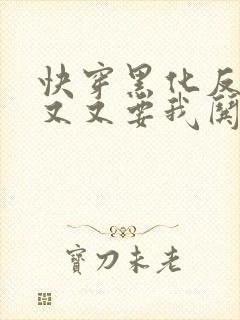 快穿黑化反
又又要我闗
寶刀未老